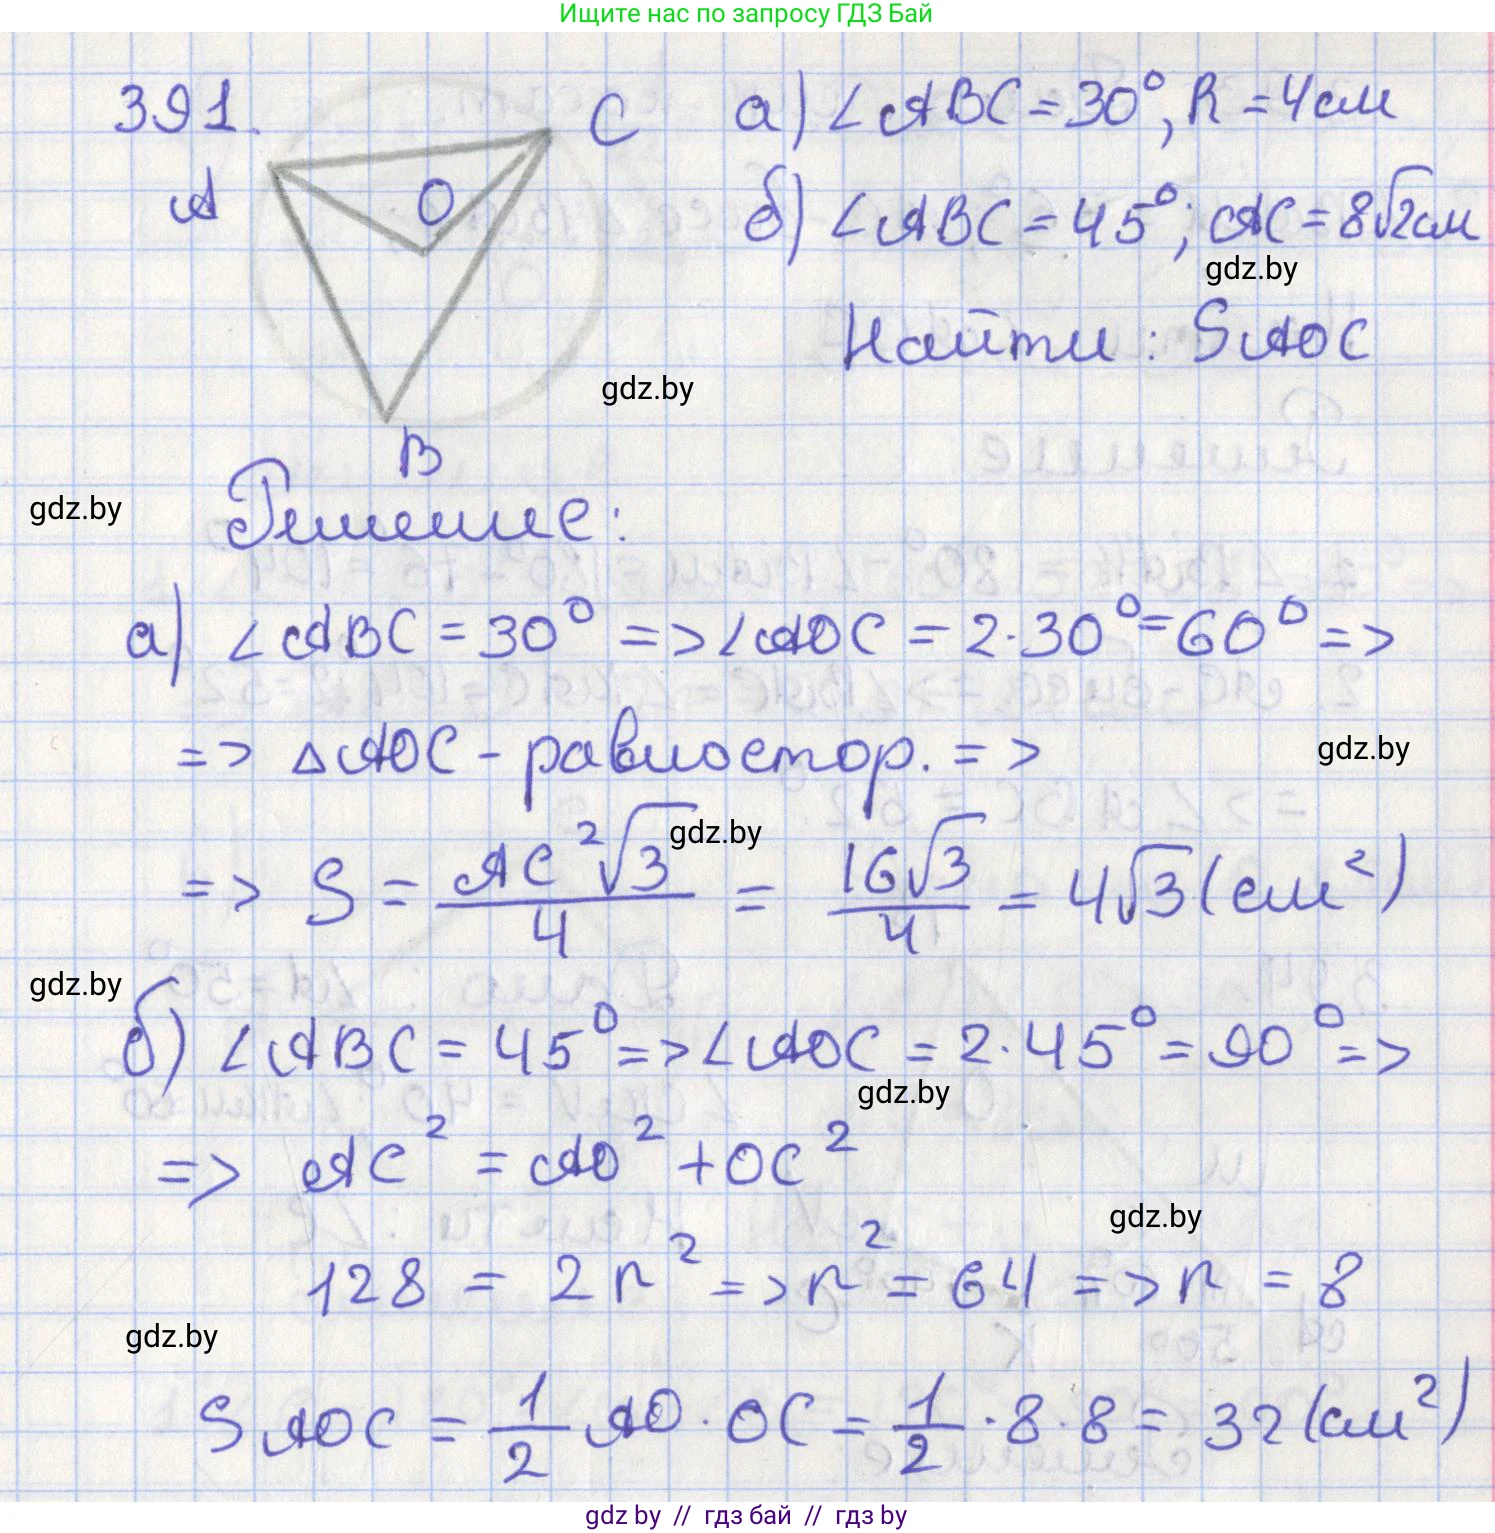 Ищите нас по запросу ГДЗ Бай
391.
C
а) ∠ABC = 30°, R = 4см
A
O
б) ∠ABC = 45°; AC = 8√2см
gdz.by
Найти: SAOC
gdz.by
B
gdz.by
Решение:
а) ∠ABC = 30° => ∠AOC = 2·30° = 60° =>
=> △AOC - равностор. =>
gdz.by
gdz.by
=> S = AC²√3/4 = 16√3/4 = 4√3 (см²)
gdz.by
б) ∠ABC = 45° => ∠AOC = 2·45° = 90° =>
gdz.by
=> AC² = AO² + OC²
gdz.by
128 = 2r² => r² = 64 => r = 8
gdz.by
SAOC = 1/2 AO · OC = 1/2 · 8 · 8 = 32 (см²)
gdz by // гдз бай // гдз by